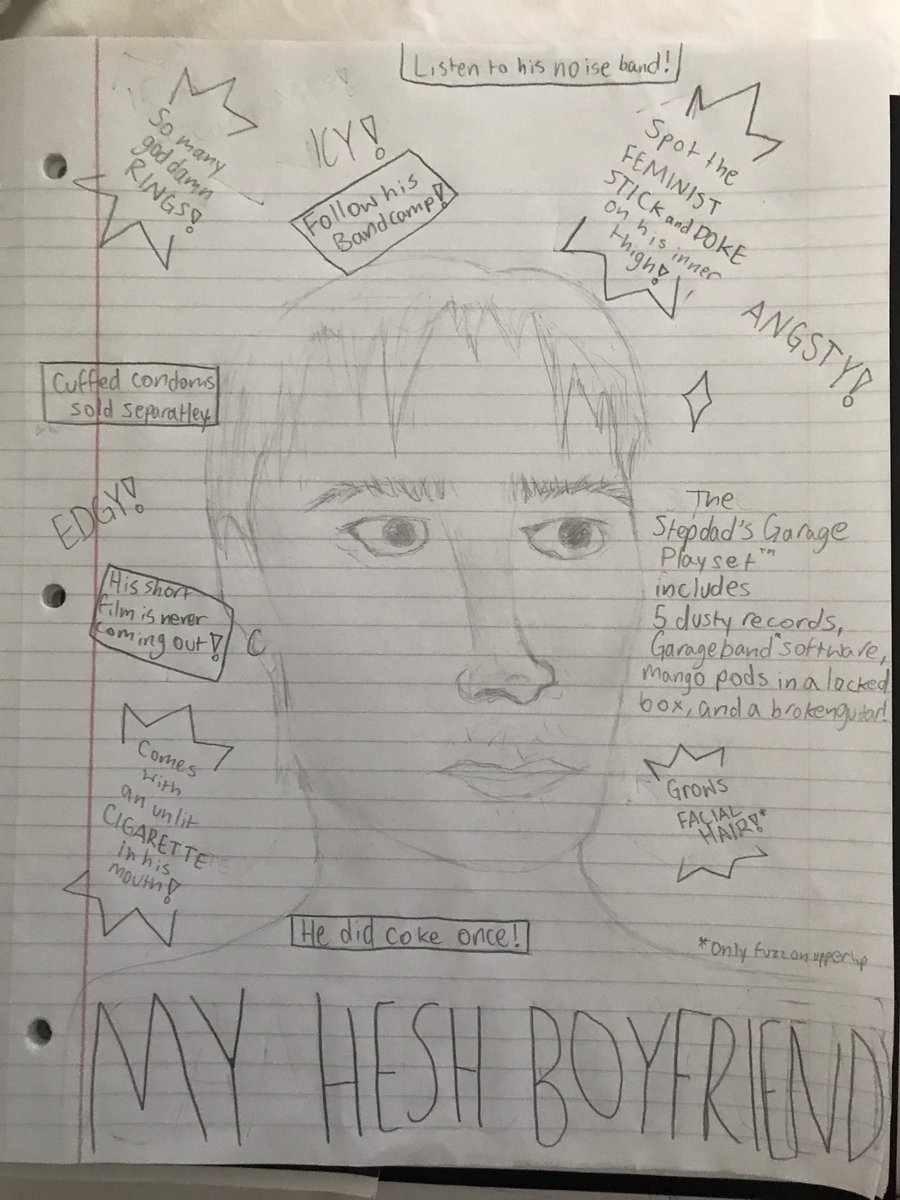 Listen to his noise band!
So many
goddamn
RINGS!
ICY!
Follow his
Bandcamp!
Spot the
FEMINIST
STICK and POKE
on his inner
thigh!
ANGSTY!
Cuffed condoms
sold separatley
EDGY!
The
Stepdad's Garage
Playset™
includes
5 dusty records,
Garageband" software,
mango pods in a locked
box, and a broken guitar!
His short
film is never
coming out!
Comes
with
an unlit
CIGARETTE
in his
mouth!
Grows
FACIAL
HAIR!*
He did coke once!
*Only fuzz on upper lip
MY HESH BOYFRIEND